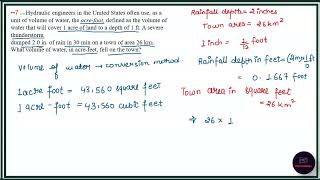 ··7 ··Hydraulic engineers in the United States often use, as a
unit of volume of water, the acre-foot, defined as the volume
of water that will cover 1 acre of land to a depth of 1 ft. A severe
thunderstorm
dumped 2.0 in. of rain in 30 min on a town of area 26 km.
What volume of water, in acre-feet, fell on the town?
Volume of water → conversion method
1 acre foot = 43,560 square feet
1 acre-foot = 43,560 cubic feet
Rainfall depth = 2 inches
Town area = 26 km²
1 Inch = 1/12 foot
Rainfall depth in feet =
= 0.1667 foot
Town area in square feet
= 26 km²
⇒ 26 × 1